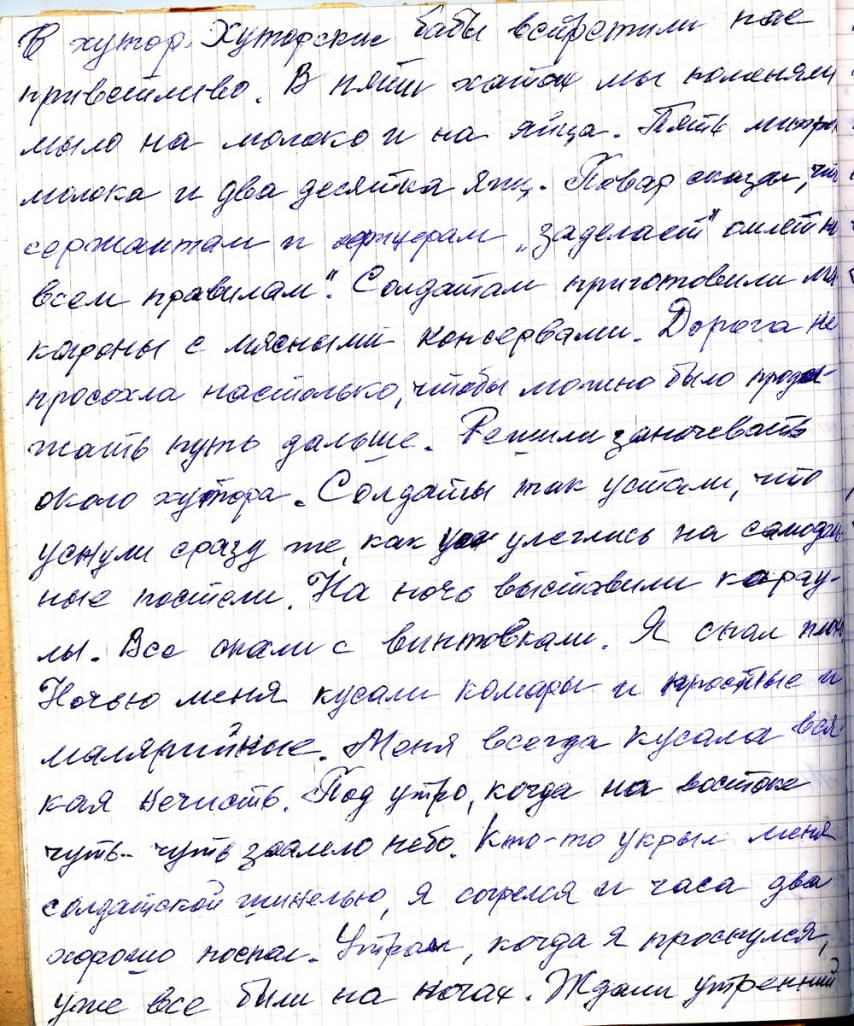 в хутор. Хуторские бабы встретили нас
приветливо. В пяти хатах мы поменяли
мыло на молоко и на яйца. Пять литров
молока и два десятка яиц. Повар сказал, что
сержантам и офицерам „заделает" омлет по
всем правилам". Солдатам приготовили ма-
кароны с мясными консервами. Дорога не
просохла настолько, чтобы можно было продол-
жать путь дальше. Решили заночевать
около хутора. Солдаты так устали, что
уснули сразу же, как улеглись на самодель-
ные постели. На ночь выставили карау-
лы. Все спали с винтовками. Я спал плохо.
Ночью меня кусали комары и простые и
малярийные. Меня всегда кусала вся-
кая нечисть. Под утро, когда на востоке
чуть-чуть заалело небо. Кто-то укрыл меня
солдатской шинелью, я согрелся и часа два
хорошо поспал. Утром, когда я проснулся,
уже все были на ногах. Ждали утренний